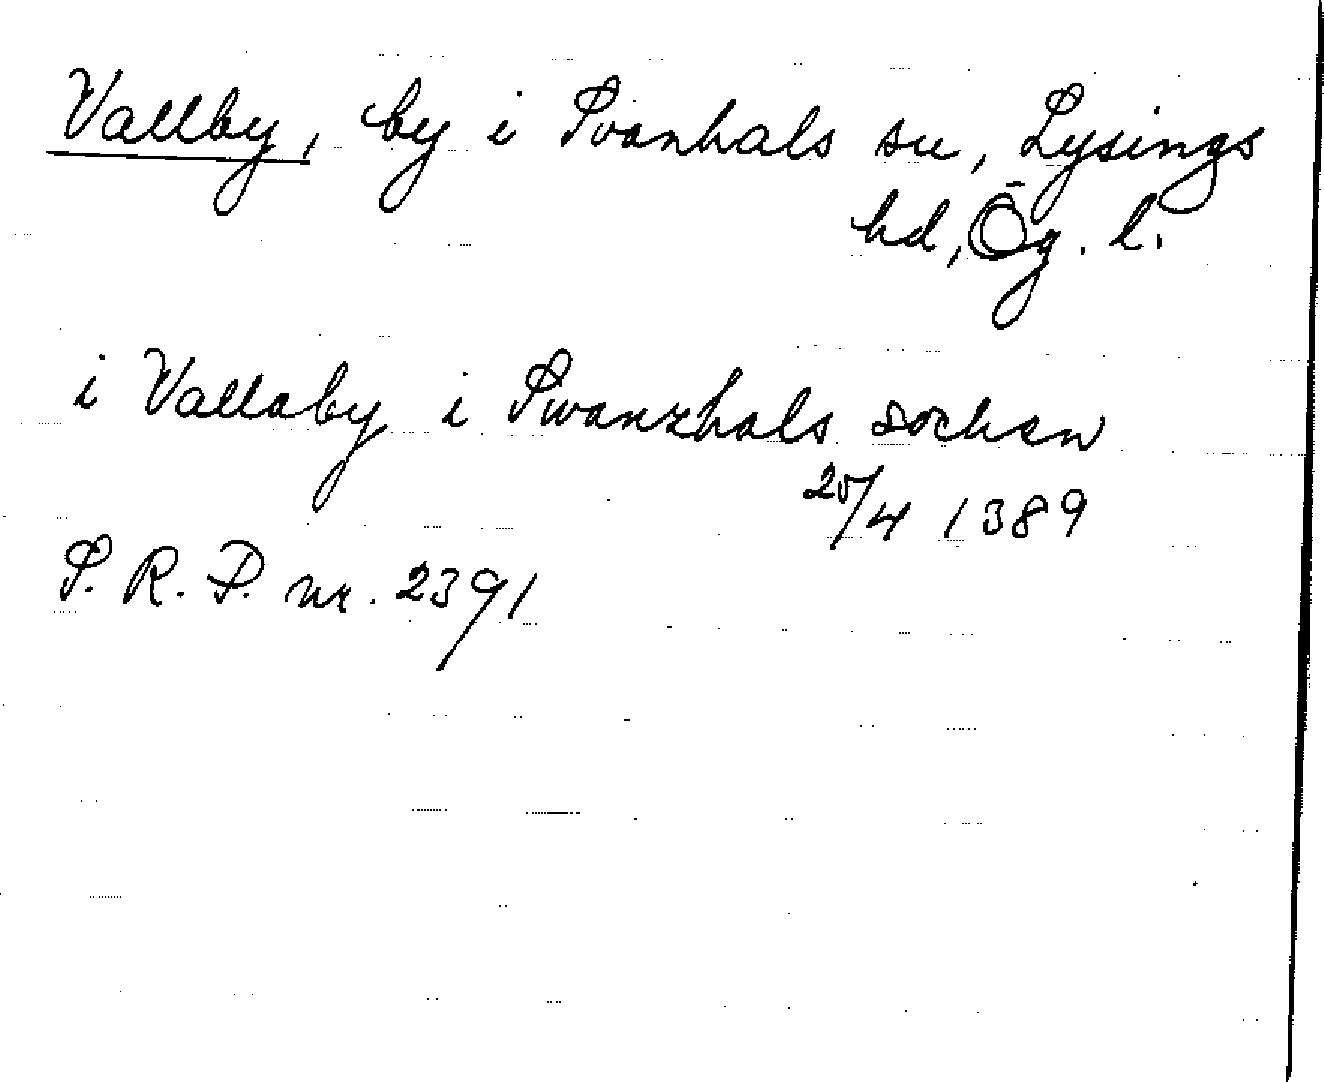 Vallby, by i Svanhals sn, Lysings
hd, Ög. l.
i Vallaby i Swanzhals sochen
25/4 1389
S. R. P. nr. 2391